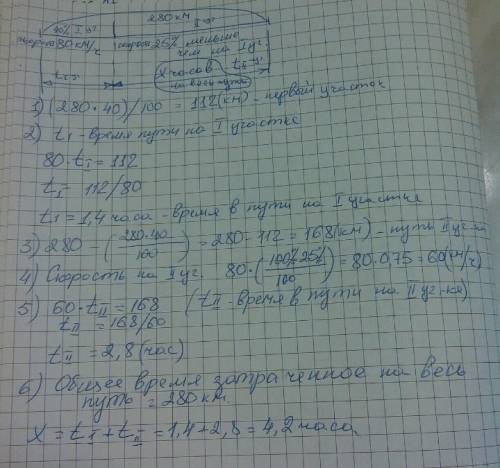 280 км
40% I уч. II уч.
скорость 80 км/ч скорость 25% меньше
чем на I уч.
X часов
на весь путь
1) (280·40)/100 = 112(км) - первый участок
2) t₁ - время пути на I участке
80·tI = 112
tI = 112/80
t₁ = 1,4 часа - время в пути на I участке
3) 280 - (280·40/100) = 280 - 112 = 168(км) - путь II уч-ка
4) Скорость на II уч. 80·(100%-25%/100) = 80·0,75 = 60(км/ч)
5) 60·tII = 168 (tII - время в пути на II уч-ке)
tII = 168/60
tII = 2,8(час)
6) Общее время затраченное на весь
путь = 280 км
X = tI + tII = 1,4 + 2,8 = 4,2 часа